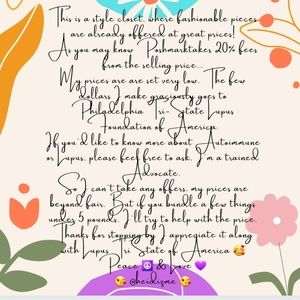 This is a style closet, where fashionable pieces
are already offered at great prices!
As you may know Poshmarktakes 20% fees
from the selling price...
My prices are are set very low. The few
dollars I make graciously goes to
Philadelphia Tri-State Lupus
Foundation of America.
If you'd like to know more about Autoimmune
or Lupus, please feel free to ask. I'm a trained
Advocate.
So I can't take any offers, my prices are
beyond fair. But if you bundle a few things
under 5 pounds, I'll try to help with the price.
Thanks for stopping by I appregiate it along
with Lupus Tri State of America 🥰
Peace ☮️ & Love 💜
😘 @heidizme 😘